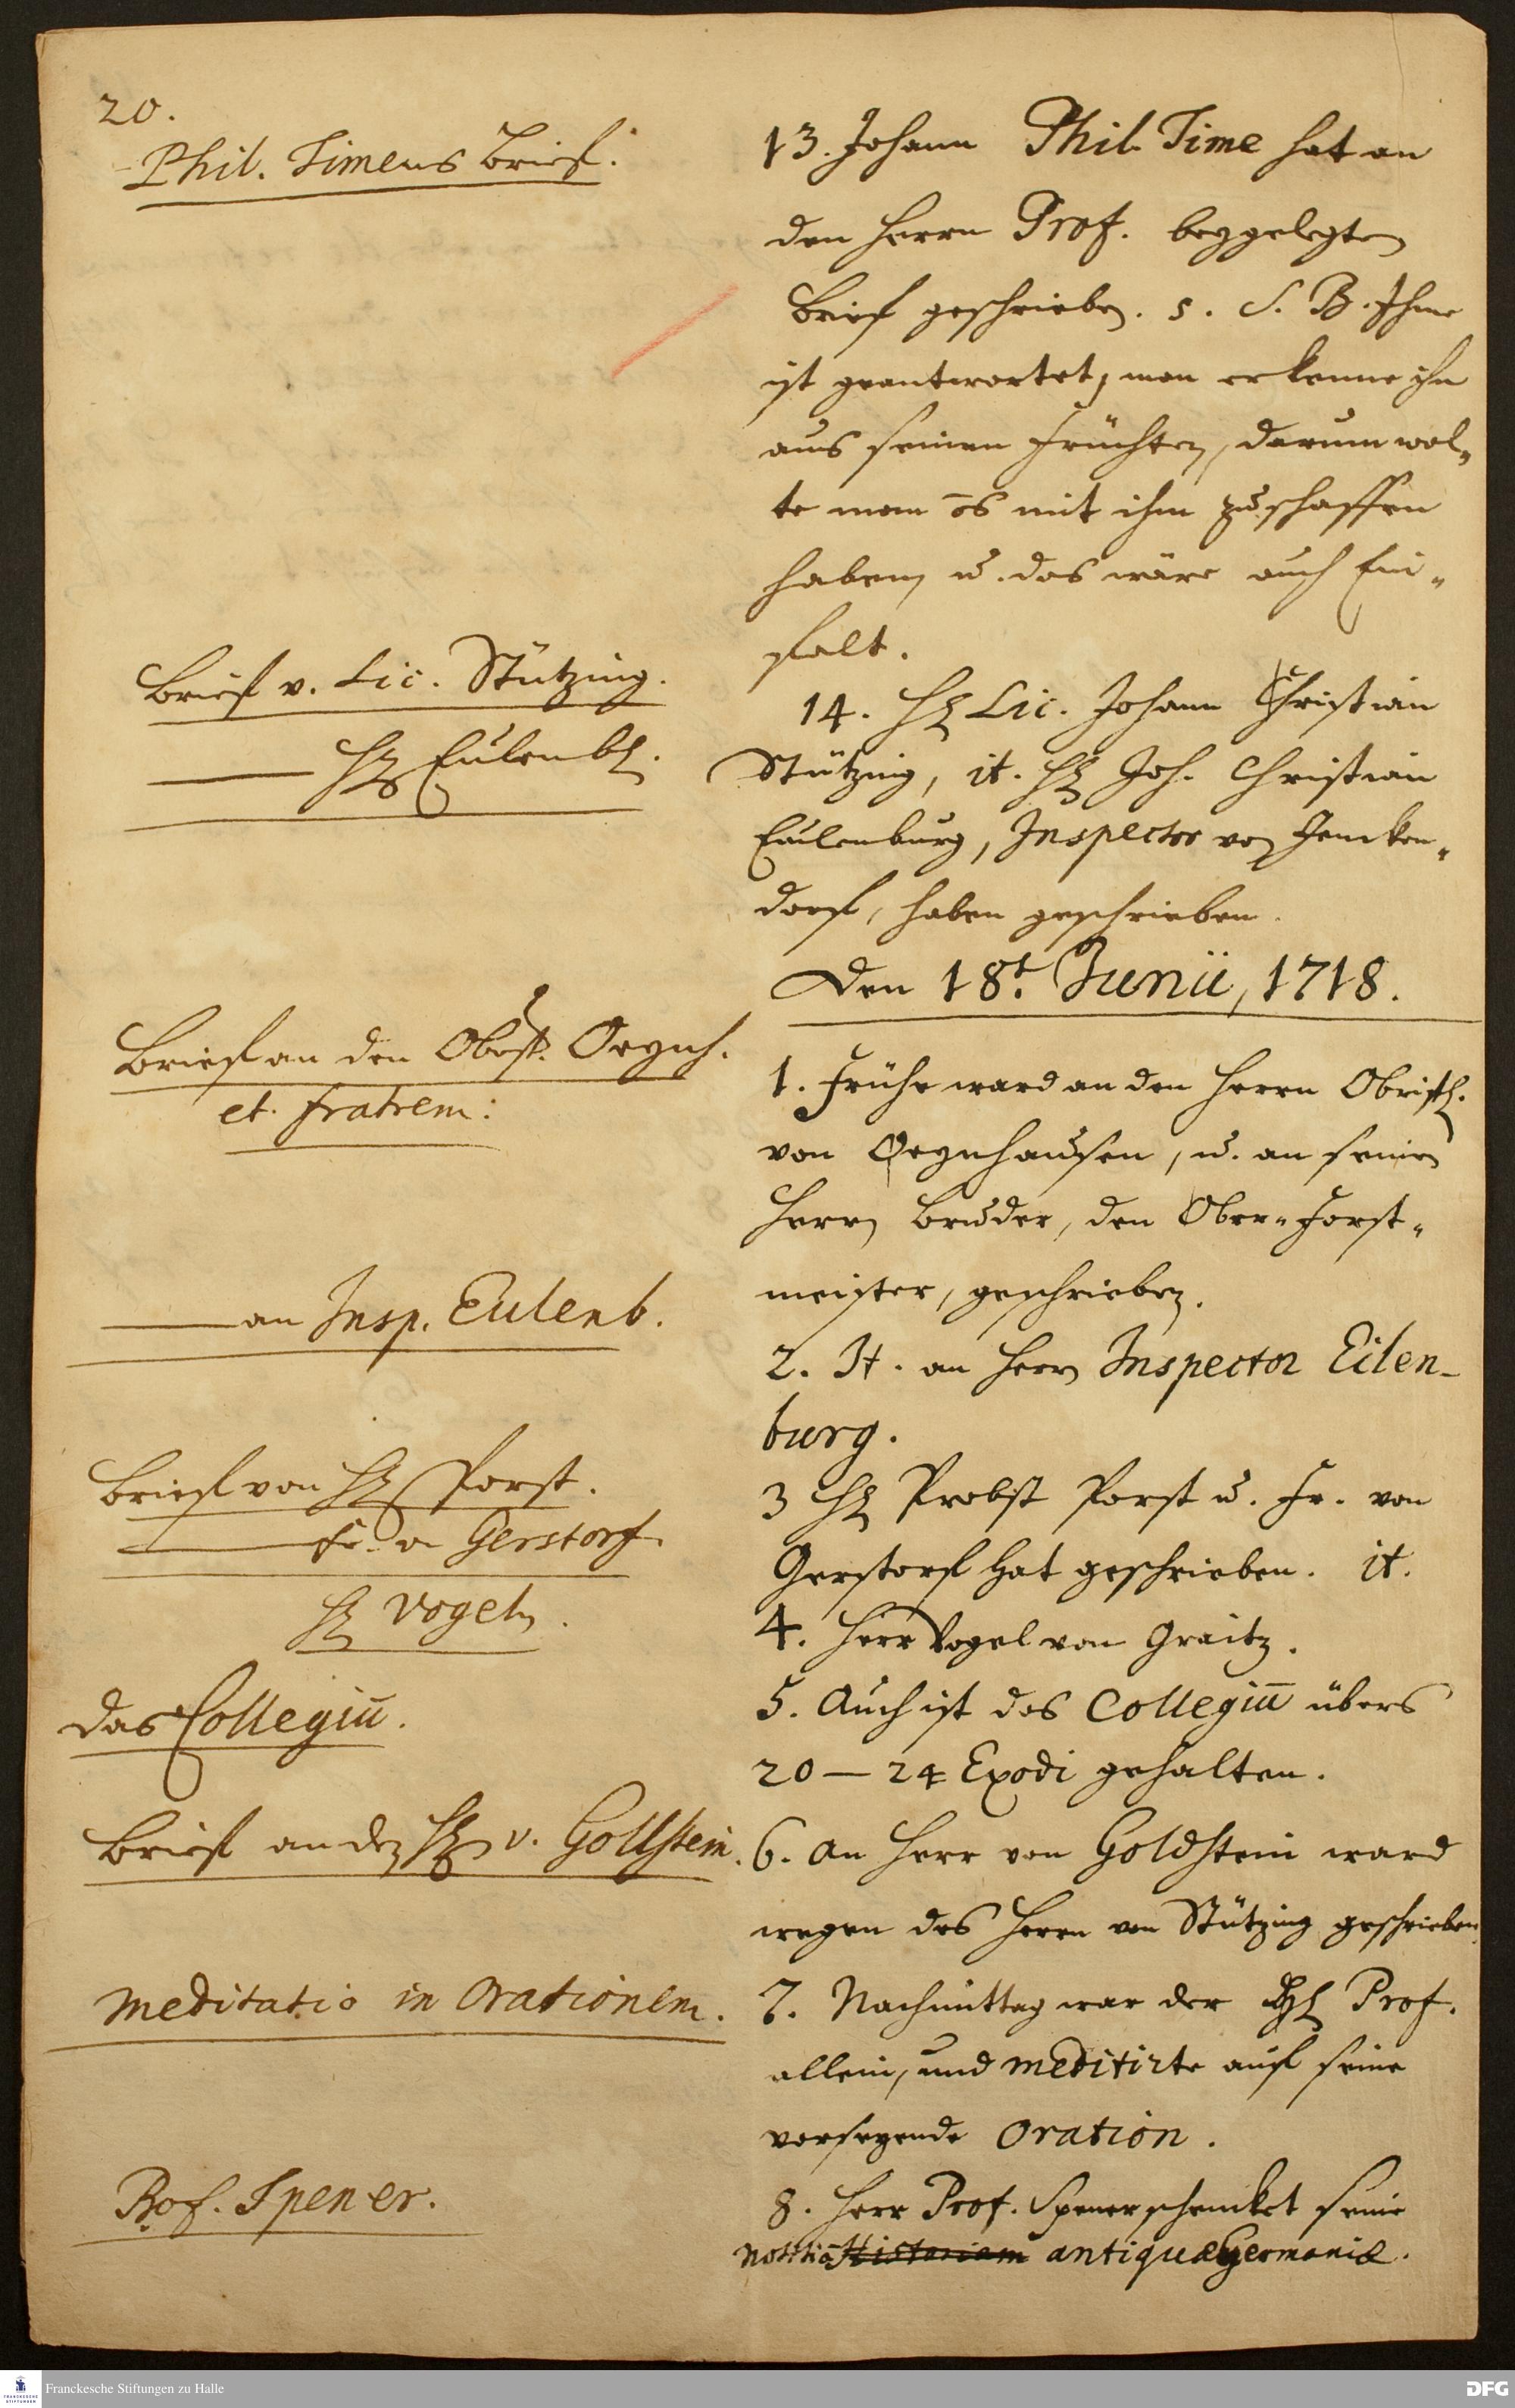 20.
Phil. Timens Brief.
13. Johann Phil. Time hat an
den Herrn Prof. beygelegten
Brief geschrieben. s. S. B. Ihme
ist geantwortet, man erkenne ihn
aus seinen Früchten, darum wol-
te man mit ihm zu schaffen
haben, u. das wäre auch Ein-
falt.
Brief v. Lic. Stützing.
H Eulenb.
14. H Lic. Johann Christian
Stützing, it. H Joh. Christian
Eulenburg, Inspector von
dorf, haben geschrieben.
Den 18t. Junii, 1718.
Brief an den Obrist. Oeynh.
et. fratrem:
1. Frühe ward an den Herrn Obristl.
von Oeynhausen, u. an seinen
Herrn Bruder, den Ober-Forst-
meister, geschrieben.
an Insp. Eulenb.
2. It. an Herrn Inspector Eilen-
burg.
Brief von H Porst.
Fr. v Gerstorf.
H Vogeln.
3 H Probst Porst u. Fr. von
Gerstorf hat geschrieben. it.
4. Herr Vogel von Graitz.
Das Collegiu̅.
5. Auch ist das Collegiu̅ übers
20 — 24 Exodi gehalten.
Brief an den H v. Gollstein.
6. An Herr von Goldstein ward
wegen des Herrn von Stützing geschrieben.
Meditatio in Orationem.
7. Nachmittag war der H Prof.
allein, und meditirte auf seine
vorseyende Oration.
Prof. Spener.
8. Herr Prof. Spener schencket seine
Notitia̅ Historiam antiquae Germaniae.
Franckesche Stiftungen zu Halle
DFG